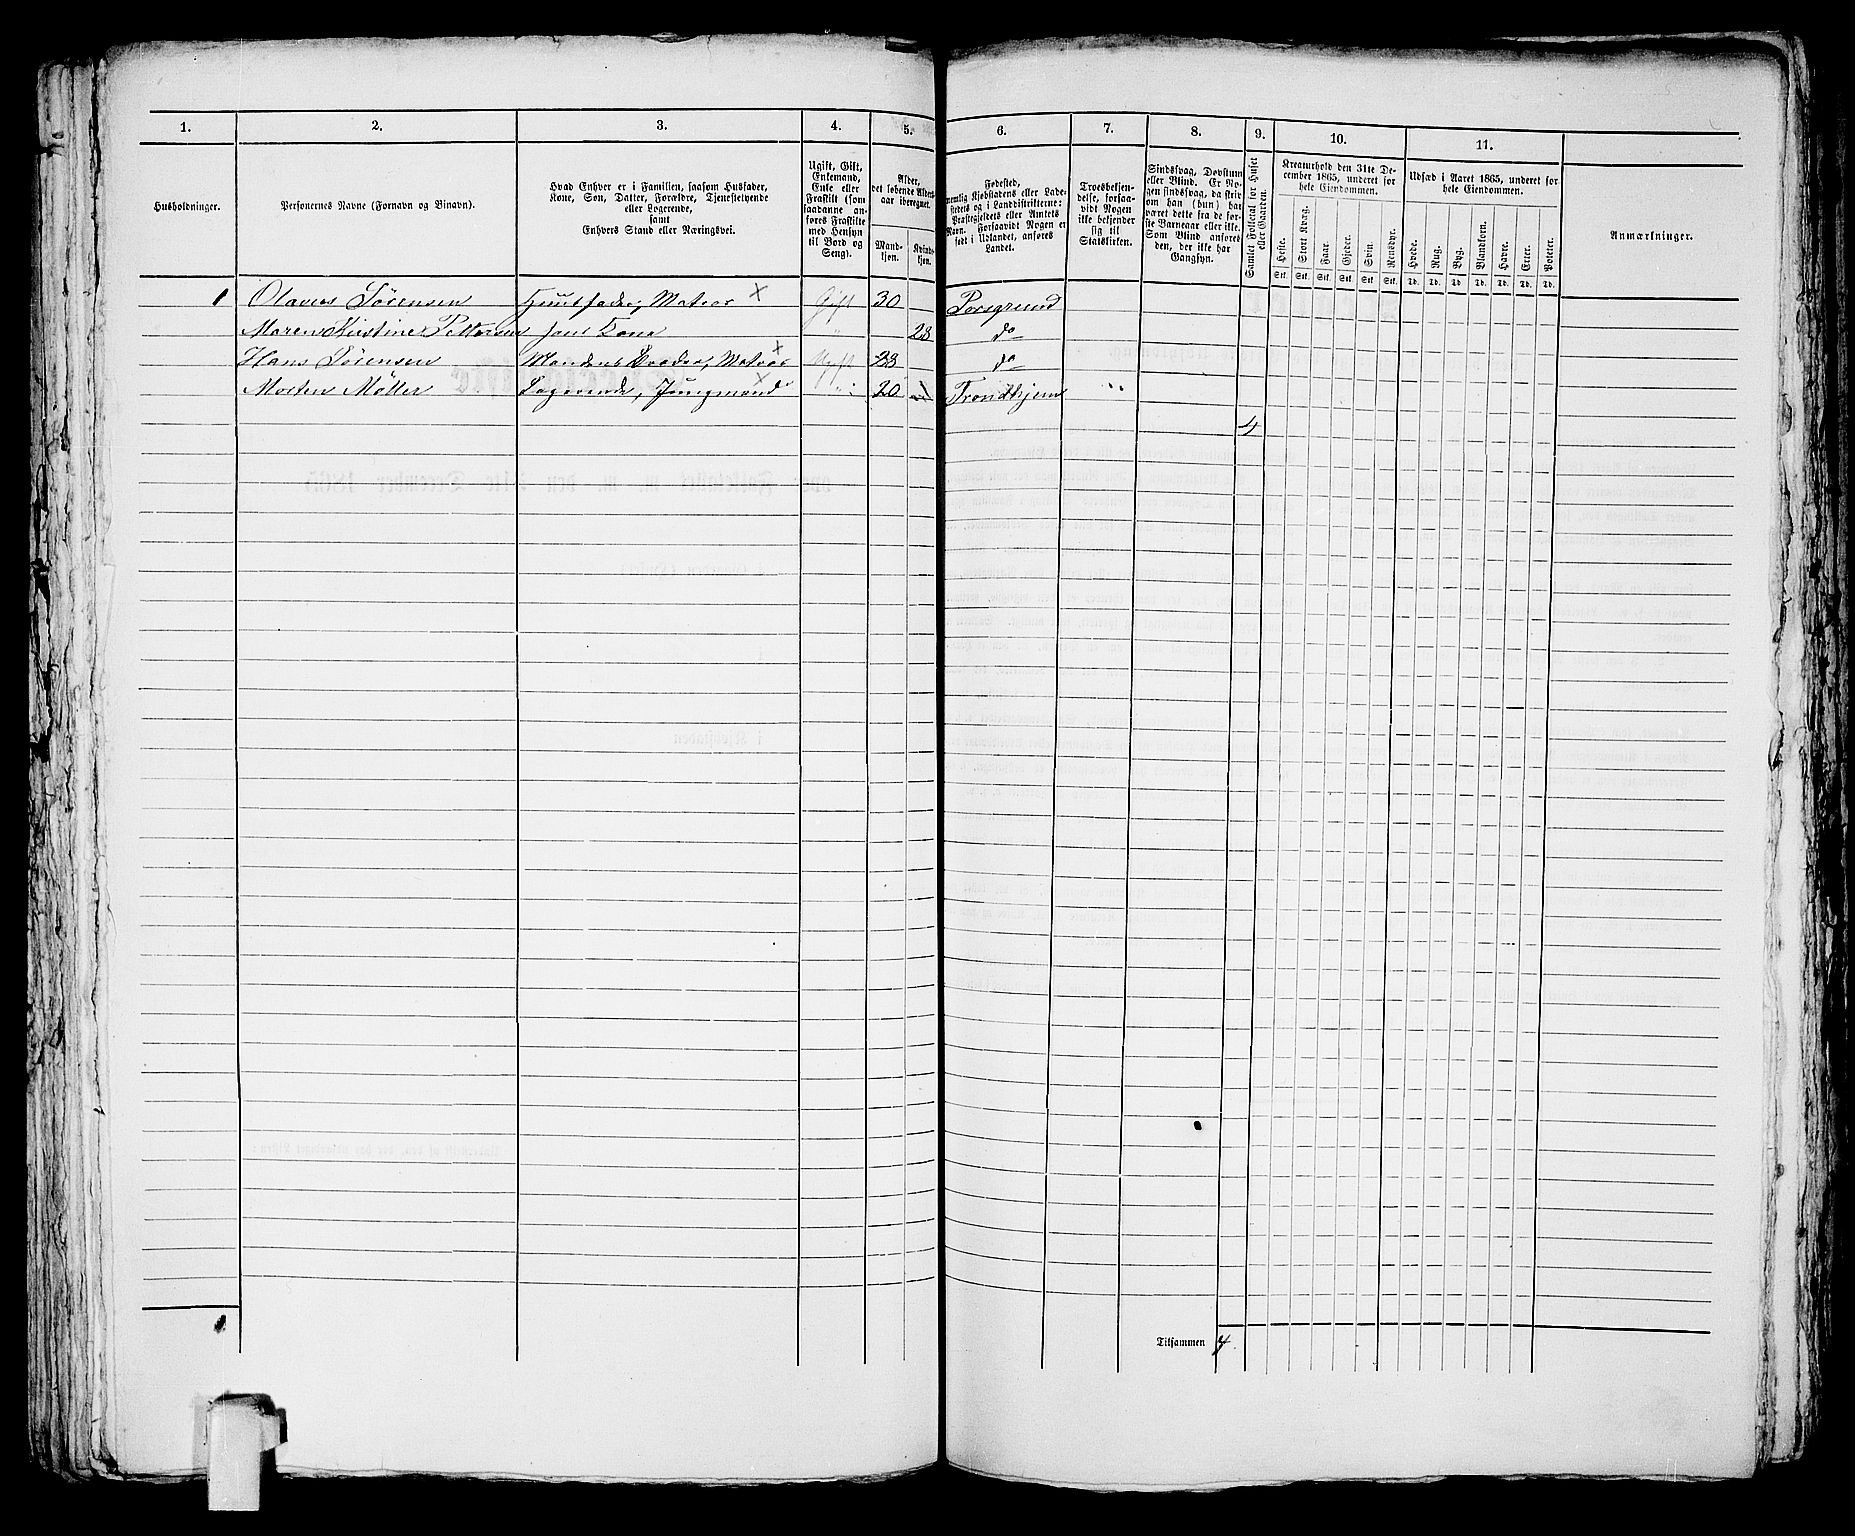 1. 2. 3. 4. 5. 6. 7. 8. 9. 10. 11.
Husholdninger.
Personernes Navne (Fornavn og Binavn).
Hvad Enhver er i Familien, saasom Husfader,
Kone, Søn, Datter, Forældre, Tjenestetyende
eller Logerende,
samt
Enhvers Stand eller Næringsvei.
Ugift, Gift,
Enkemand,
Enke eller
Fraskilt (som
saadanne an-
føres Fraskilte
med Hensyn
til Bord og
Seng).
Alder,
det løbende Alders-
aar iberegnet.
Mand-
kjøn.
Kvinde-
kjøn.
Fødested,
nemlig Kjøbstadens eller Lade-
stedets og i Landdistrikterne:
Præstegjeldets eller Amtets
Navn. Forsaavidt Nogen er
født i Udlandet, anføres
Landet.
Troesbekjen-
delse, forsaa-
vidt Nogen
ikke bekjender
sig til
Statskirken.
Sindssvag, Døvstum
eller Blind. Er No-
gen sindssvag, da skriv
om han (hun) har
været dette fra de før-
ste Barneaar eller ikke.
Som Blind anføres
den, der ikke har
Gangsyn.
Samlet Folketal for Huset
eller Gaarden.
Kreaturhold den 31te De-
cember 1865, underet for
hele Eiendommen.
Heste. Stort Kvæg. Faar. Gjeder. Sviin. Rensdyr.
Stk. Stk. Stk. Stk. Stk. Stk.
Udsæd i Aaret 1865, underet for
hele Eiendommen.
Hvede. Rug. Byg. Blandkorn. Havre. Erter. Poteter.
Td. Td. Td. Td. Td. Td. Td.
Anmærkninger.
1 Olaves Sørensen Huusfader, Matros × Gift 30 Porsgrund
Maren Kirstine Pettersen hans Kone " 28 do
Hans Sørensen Mandens Broder, Matros × Ugift 33 do
Morten Møller Logerende, Jungmand × " 20 Trondhjem "
4
Tilsammen 4